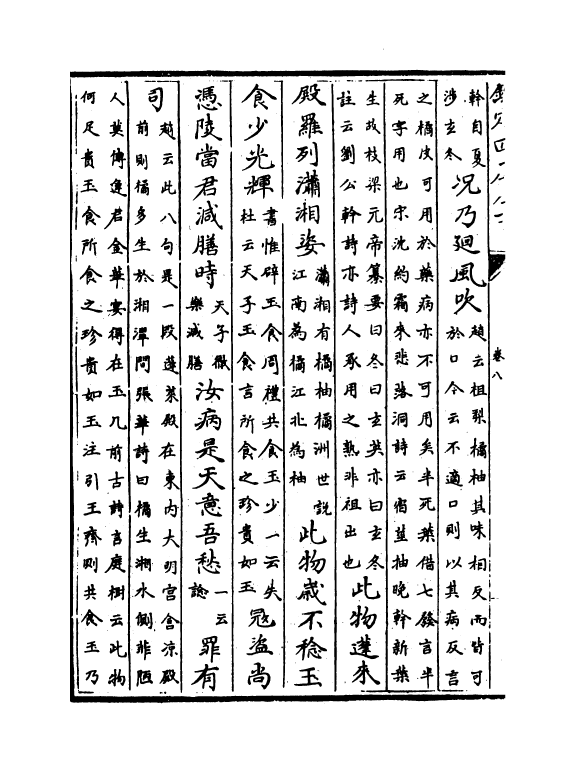 幹自夏涉玄冬况乃迴風吹趙云柤棃橘柚其味相反而皆可於口今云不適口則以其病反言
之橘皮可用於藥病亦不可用矣半死葉借七發言半死字用也宋沈約霜來悲落洞詩云宿莖抽晚幹新葉
生故枝梁元帝纂要曰冬曰玄英亦曰玄冬註云劉公幹詩亦詩人承用之熟非祖出也此物蓬來
殿羅列瀟湘姿瀟湘有橘柚橘洲世説江南為橘江北為柚此物歲不稔玉
食少光輝書惟辟玉食周禮共食玉少一云失杜云天子玉食言所食之珍貴如玉寇盗尚
憑陵當君減膳時天子徹樂減膳汝病是天意吾愁一云諗罪有
司趙云此八句是一段蓬萊殿在東内大明宫含凉殿前則橘多生於湘潭間張華詩曰橘生湘水側菲陋
人莫傳逢君金華宴得在玉几前古詩言庭樹云此物何足貴玉食所食之珍貴如玉注引王齊則共食玉乃
卷八